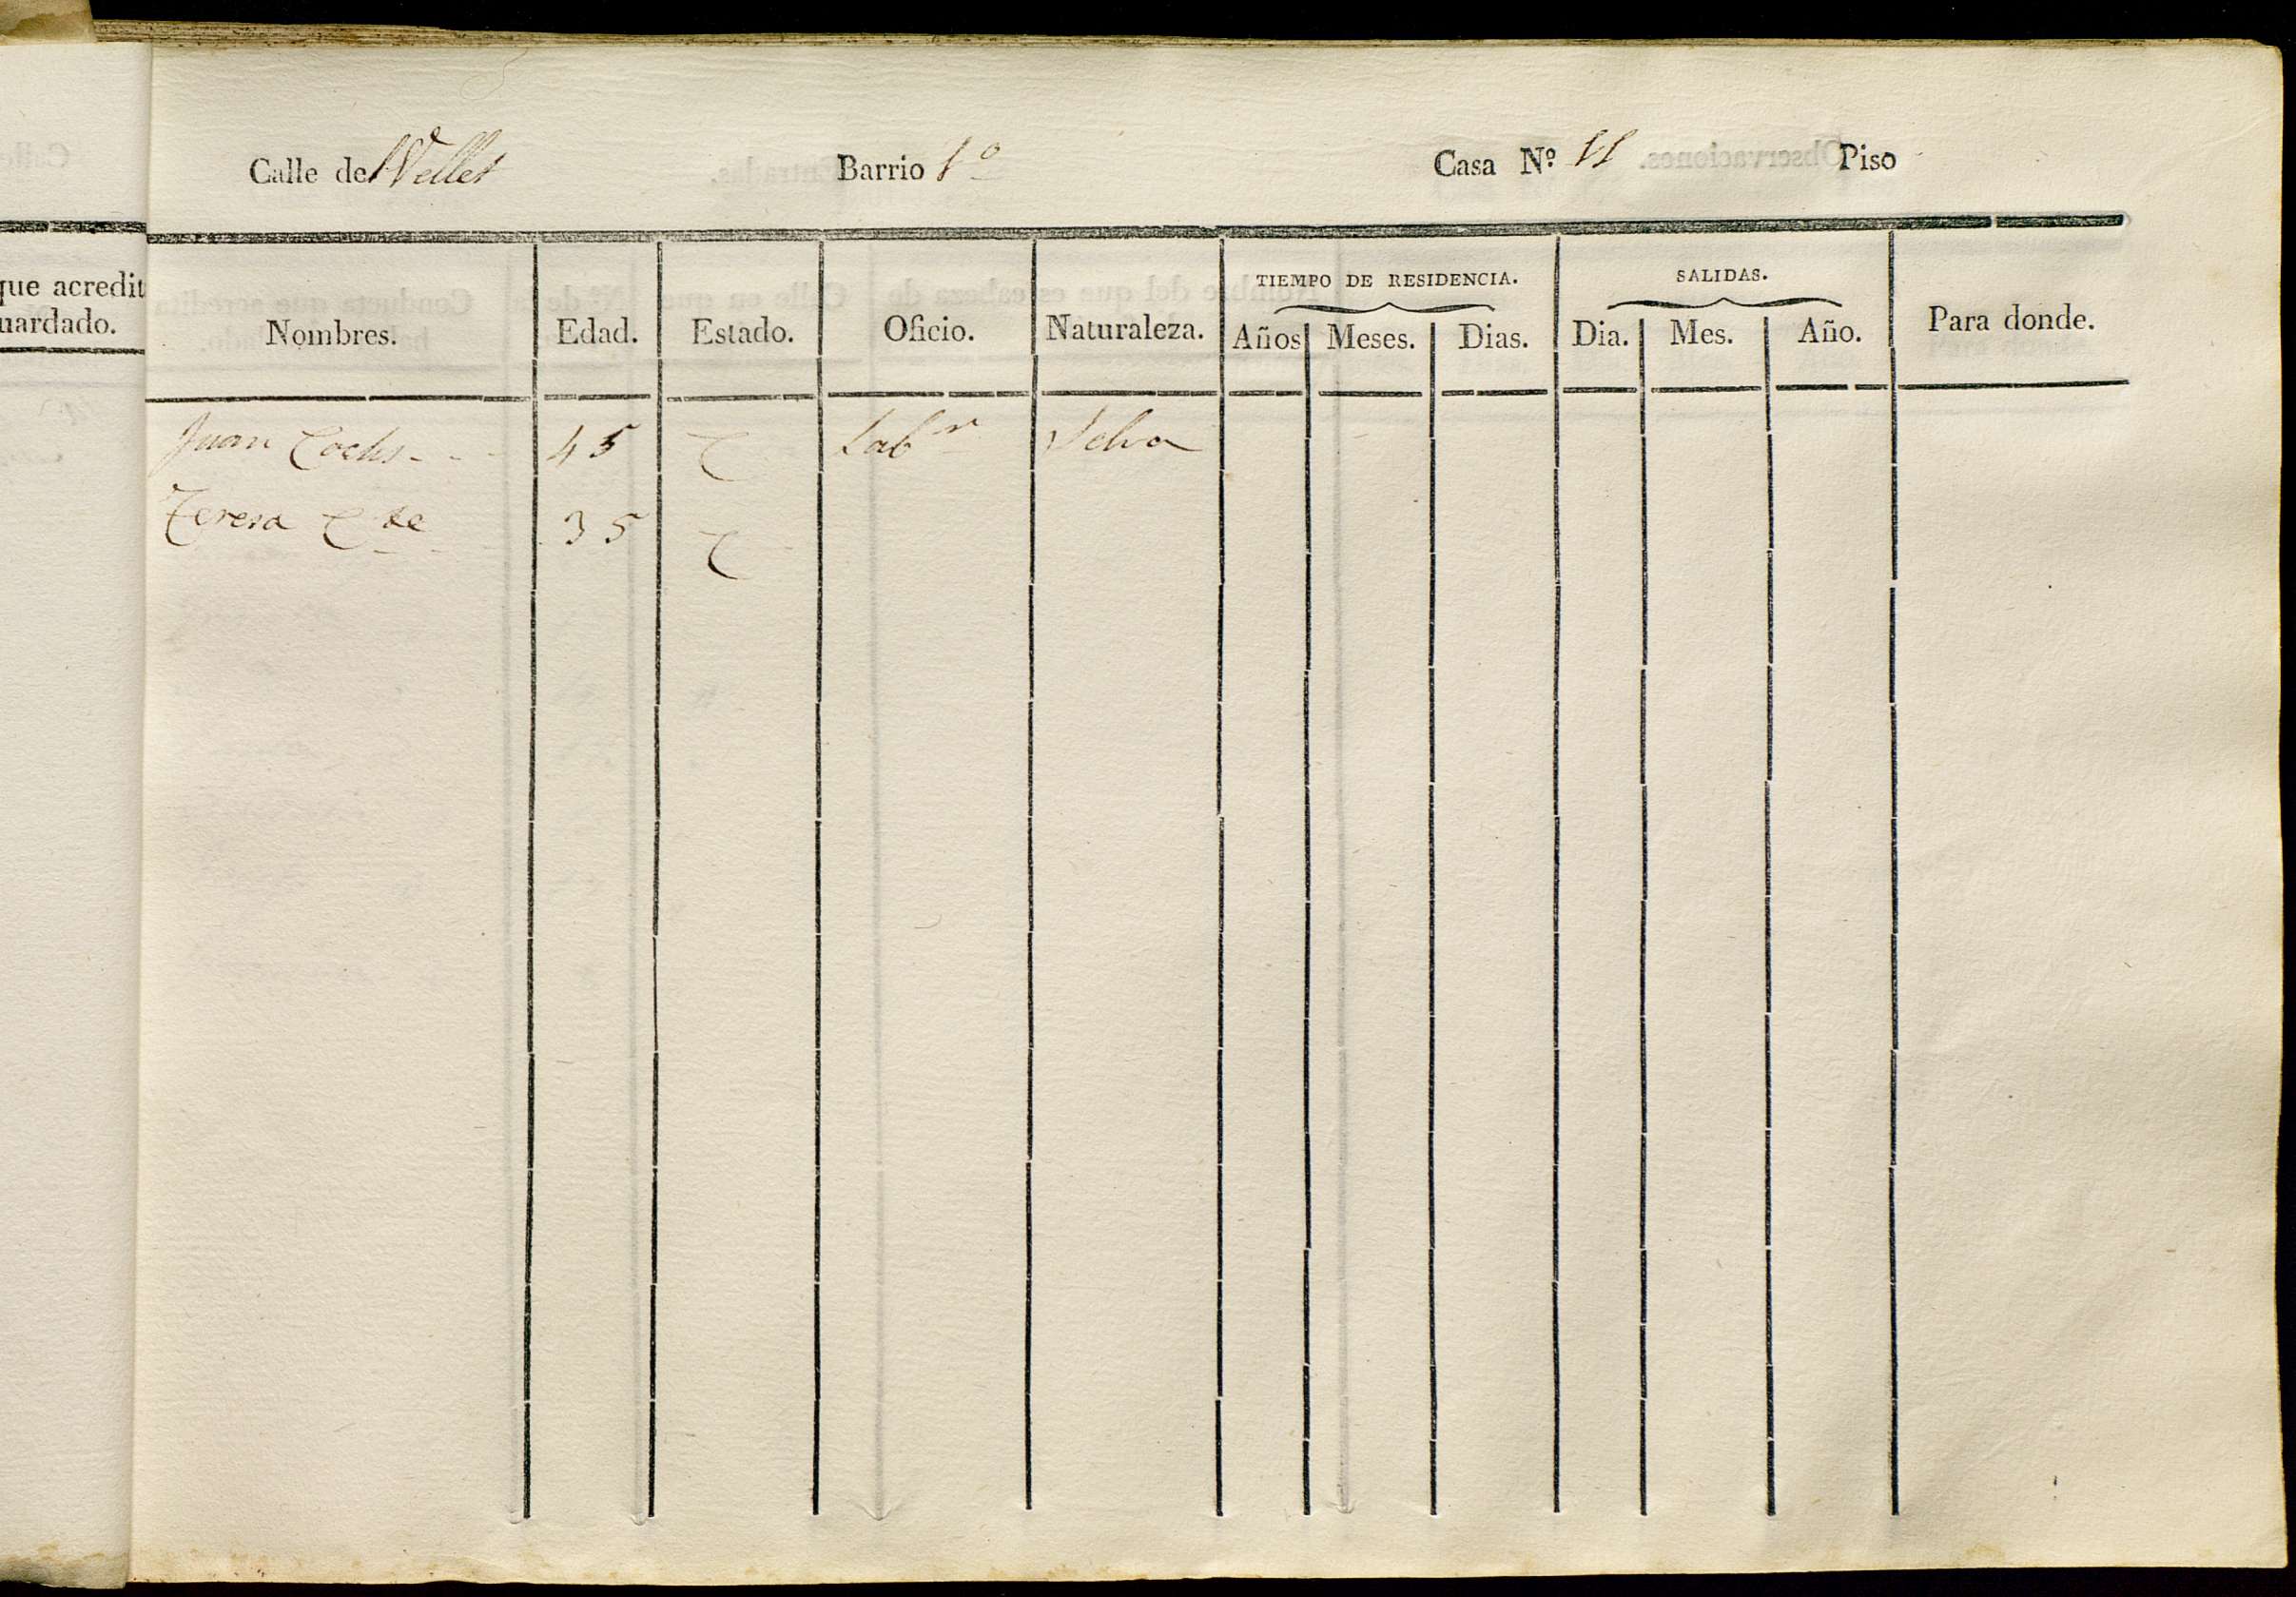 Calle de Vellet Barrio 1º Casa Nº 11 Piso
que acredit
uardado.
Nombres. Edad. Estado. Oficio. Naturaleza. TIEMPO DE RESIDENCIA. Años Meses. Dias. SALIDAS. Dia. Mes. Año. Para donde.
Juan Cochs 45 C Labr Selva
Teresa Cte 35 C